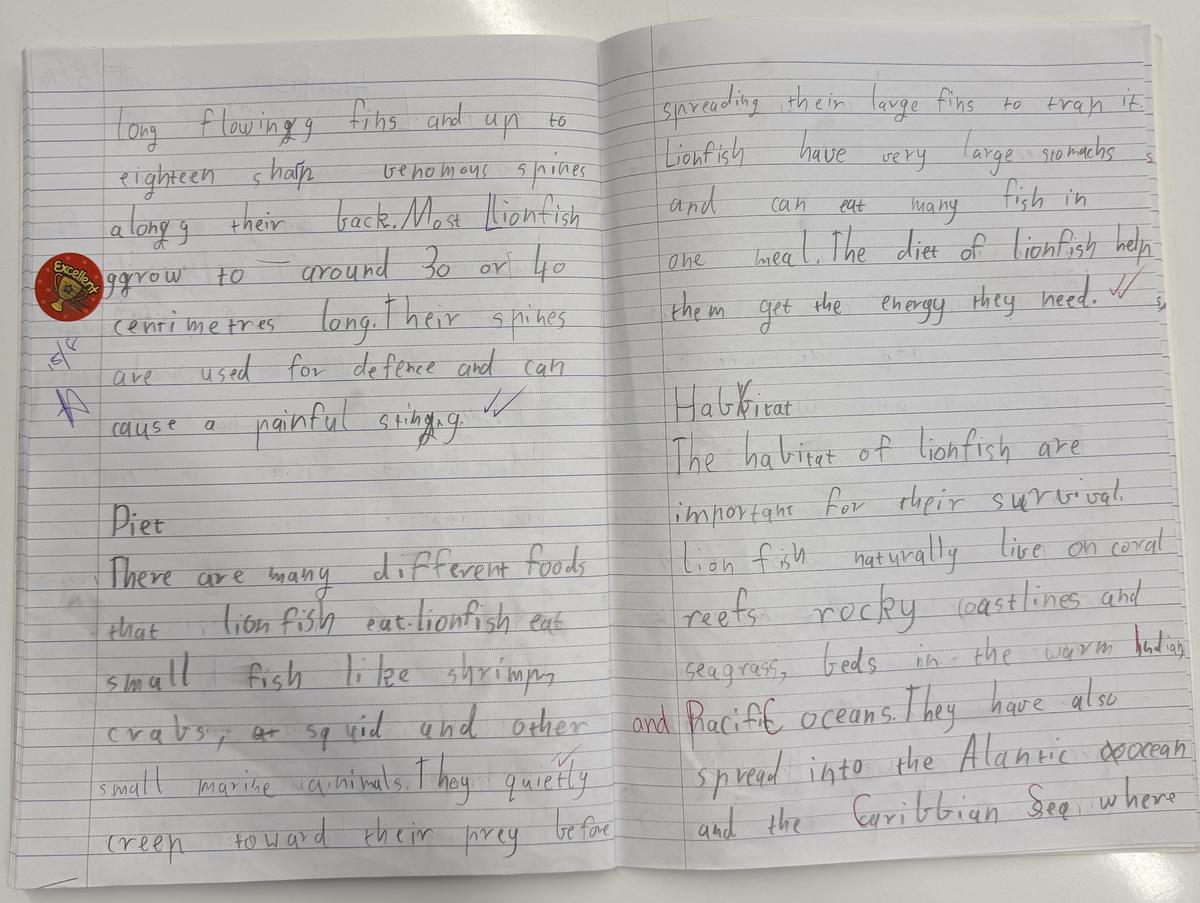 long flowing g fins and up to
eighteen sharp venomous spines
along g their back. Most Lionfish
Excellent
ggrow to around 30 or 40
centimetres long. Their spines
are used for defence and can
cause a painful sting g.
Diet
There are many different foods
that lionfish eat. lionfish eat
small fish like shrimp,
crabs, squid and other
small marine animals. They quietly
creep toward their prey before
spreading their large fins to trap it.
Lionfish have very large stomachs s
and can eat many fish in
one meal. The diet of lionfish help
them get the energy they need.
Habitat
The habitat of lionfish are
important for their survival.
lion fish naturally live on coral
reefs rocky coastlines and
seagrass, beds in the warm Indian
and Pacific oceans. They have also
spread into the Alantic ocean
and the Caribbian Sea, where